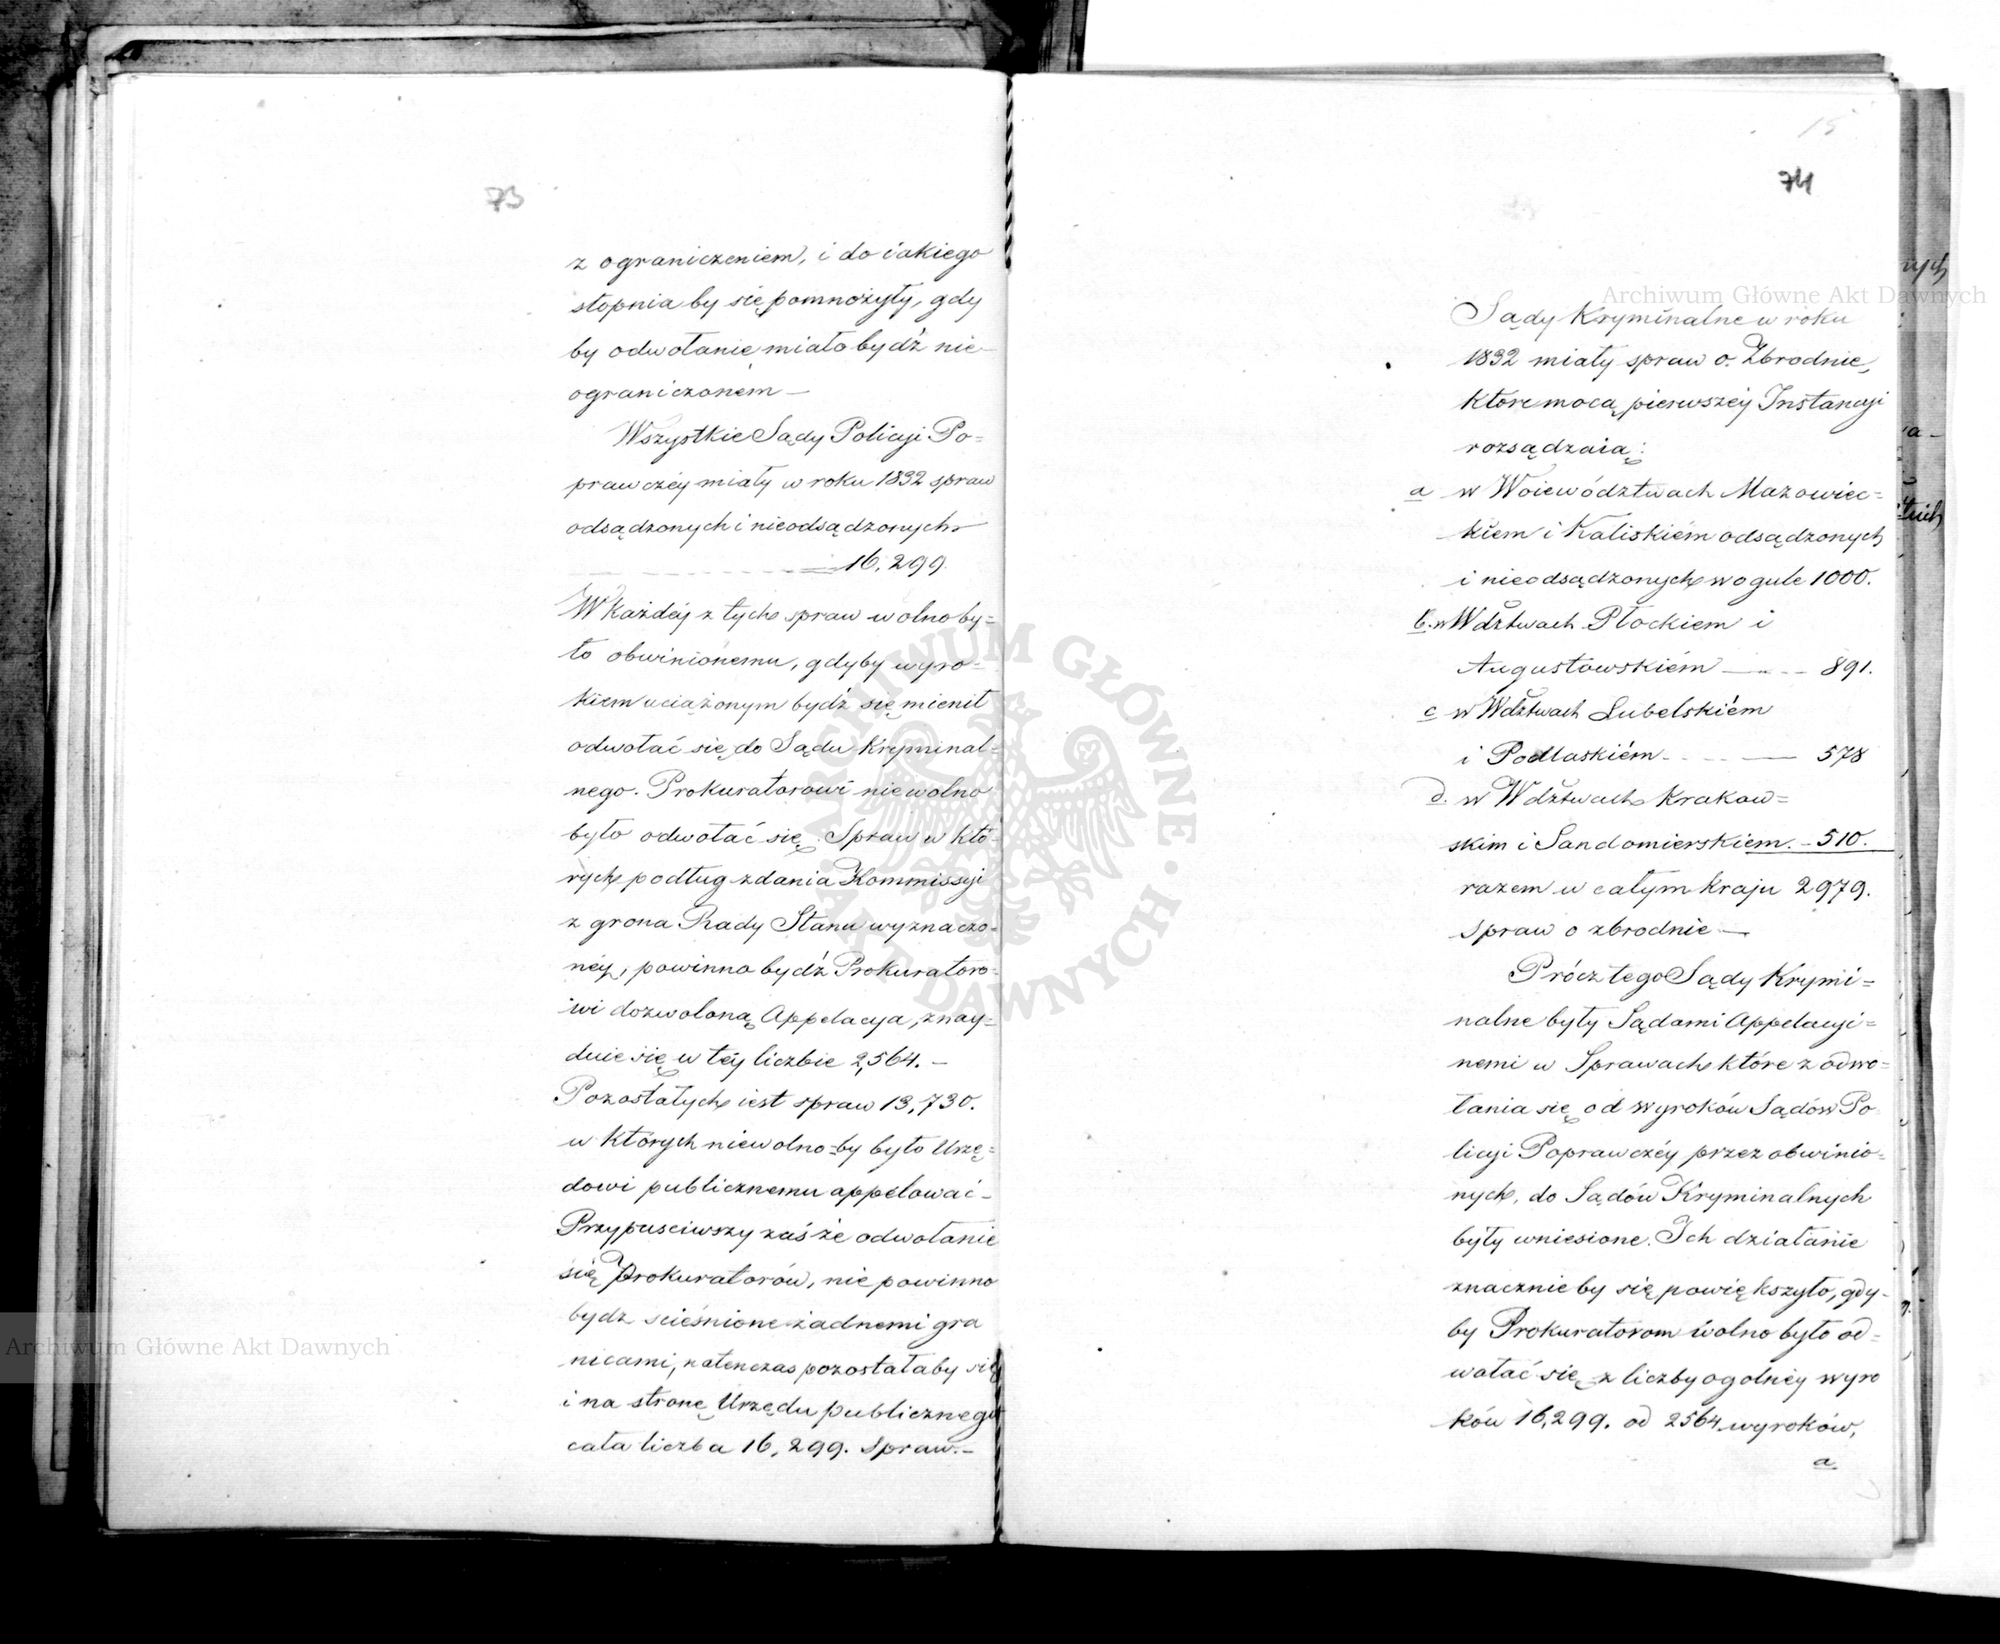 73
z ograniczeniem, i do iakiego
stopnia by się pomnożyły, gdy
by odwołanie miało bydź nie-
ograniczoném —
Wszystkie Sądy Policyi Po=
prawczéy miały w roku 1832 spraw
odsądzonych i nieodsądzonych
16,299.
W każdéy z tych spraw wolno by=
ło obwinionemu, gdyby wyro-
kiem uciążonym bydź się mienił
odwołać się do Sądu Kryminal=
nego. Prokuratorowi nie wolno
było odwołać się. Spraw w któ-
rych podług zdania Kommissyi
z grona Rady Stanu wyznaczo-
néy, powinna bydź Prokuratoro-
wi dozwoloną Appelacya, znay-
duie się w téy liczbie 2,564. —
Pozostałych iest spraw 13,730.
w których niewolno-by było Urzę=
dowi publicznemu appelować —
Przypusciwszy zaś że odwołanie
się Prokuratorów, nie powinno
bydz scieśnione żadnemi gra
nicami, natenczas pozostałaby się
i na stronę Urzędu publicznego
cała liczba 16,299. spraw. —
15
74
Sądy Kryminalne w roku
1832 miały spraw o Zbrodnie,
które mocą pierwszéy Instancyi
rozsądzaią:
a w Woiewództwach Mazowiec=
kiem i Kaliskiém odsądzonych
i nieodsądzonych wogule 1000.
b. w Wdztwach Płockiem i
Augustowskiém — „ — 891.
c w Wdztwach Lubelskiém
i Podlaskiém - - - — 578
d. w Wdztwach Krakow=
skim i Sandomierskiem. - 510.
razem w całym kraju 2979.
spraw o zbrodnie —
Prócz tego Sądy Krymi=
nalne były Sądami Appelacyi=
nemi w Sprawach które z odwo=
łania się od wyroków Sądów Po
licyi Poprawczéy przez obwinio=
nych, do Sądów Kryminalnych
były wniesione. Ich działanie
znacznie by się powiększyło, gdy-
by Prokuratorom wolno było od=
wołać się z liczby ogolnéy wyro
ków 16,299. od 2564 wyroków,
a
Archiwum Główne Akt Dawnych
Archiwum Główne Akt Dawnych
ARCHIWUM GŁÓWNE AKT DAWNYCH